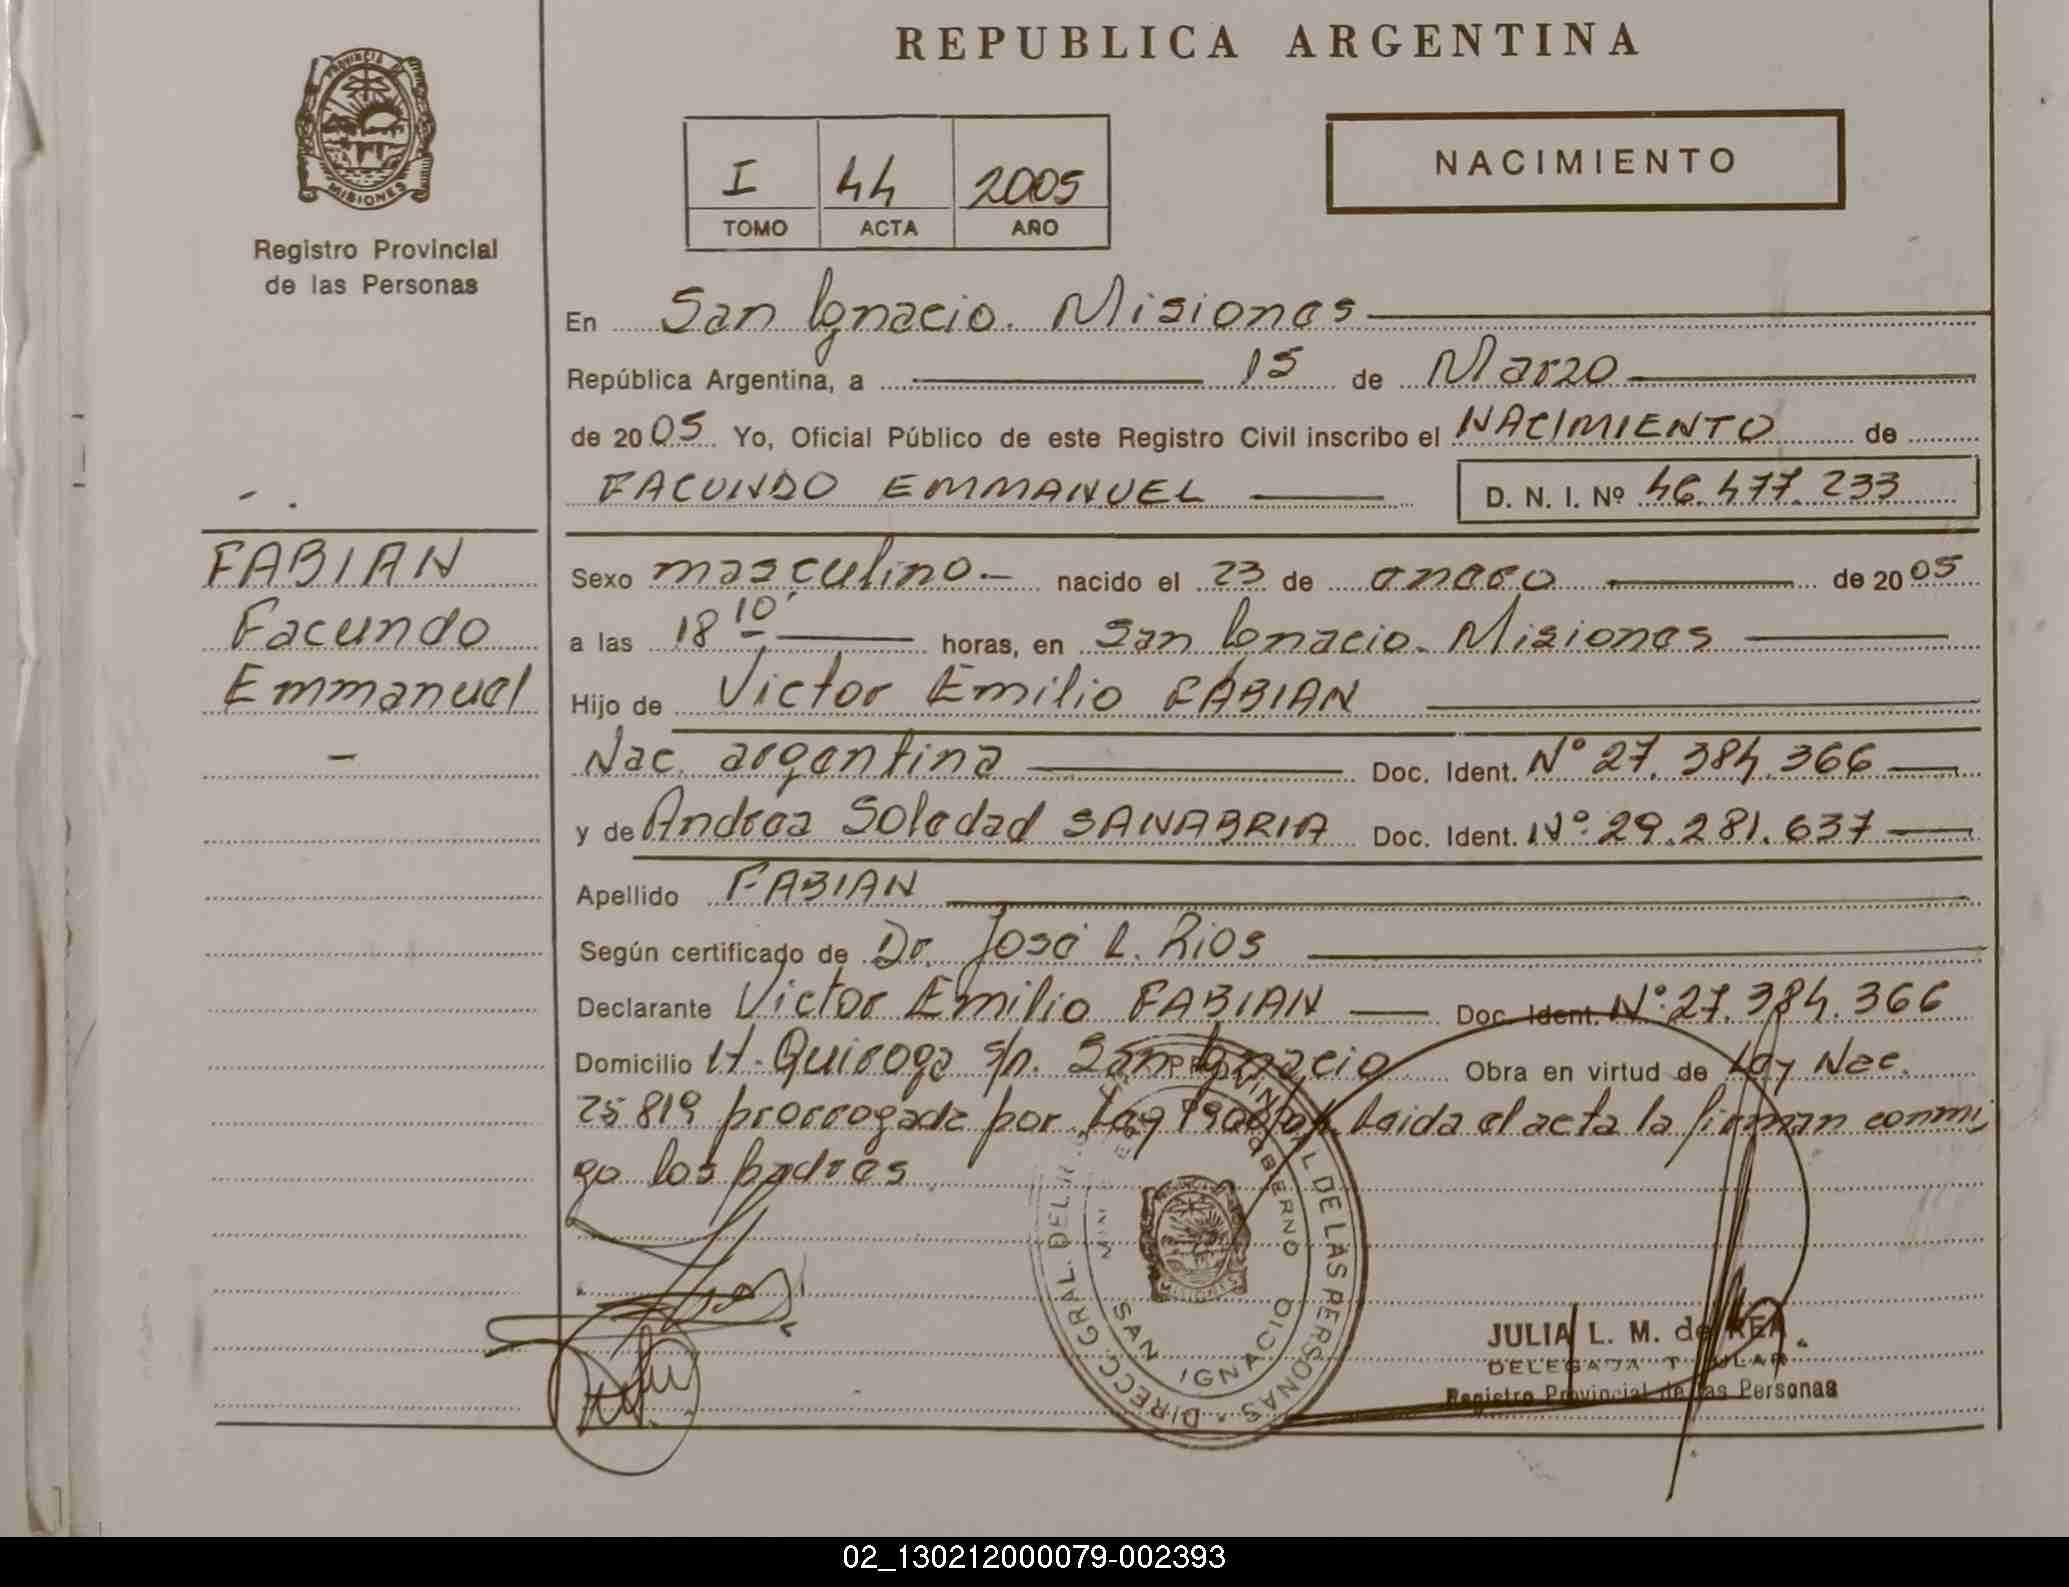 REPUBLICA ARGENTINA
PROVINCIA DE
MISIONES
Registro Provincial
de las Personas
I 44 2005
TOMO ACTA AÑO
NACIMIENTO
En San Ignacio. Misiones
República Argentina, a 15 de Marzo
de 2005 Yo, Oficial Público de este Registro Civil inscribo el NACIMIENTO de
FACUNDO EMMANUEL D. N. I. Nº 46.477.233
FABIAN
Facundo
Emmanuel
-
Sexo masculino.- nacido el 23 de enero de 2005
a las 18 10' horas, en San Ignacio. Misiones
Hijo de Victor Emilio FABIAN
Nac. argentina Doc. Ident. Nº 27.384.366
y de Andrea Soledad SANABRIA Doc. Ident. Nº 29.281.637
Apellido FABIAN
Según certificado de Dr. José L. Rios
Declarante Victor Emilio FABIAN Doc. Ident. Nº 27.384.366
Domicilio H. Quiroga s/n. San Ignacio Obra en virtud de Ley Nac.
25819 prorrogada por Ley Leida el acta la firman conmi
go los padres
DIRECC. GRAL. DEL DE LAS PERSONAS
GOBIERNO
SAN IGNACIO
MISIONES
JULIA L. M. de REA
DELEGADA TITULAR
Registro Provincial de las Personas
02_130212000079-002393